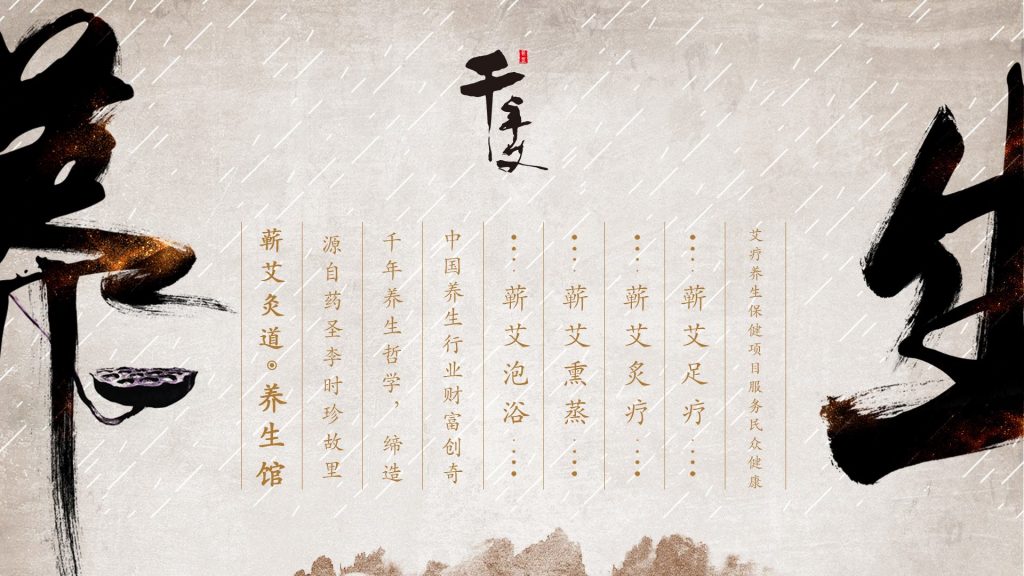 养生
千年艾
蕲艾灸道◉养生馆
源自药圣李时珍故里
千年养生哲学，缔造
中国养生行业财富创奇
蕲艾泡浴
蕲艾熏蒸
蕲艾炙疗
蕲艾足疗
艾疗养生保健项目服务民众健康